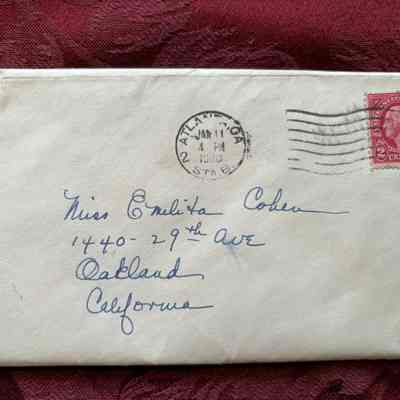 ATLANTA, GA.
JAN 11
4 PM
2
STA B
2
Miss Emilita Cohen
1440-29th Ave
Oakland
California